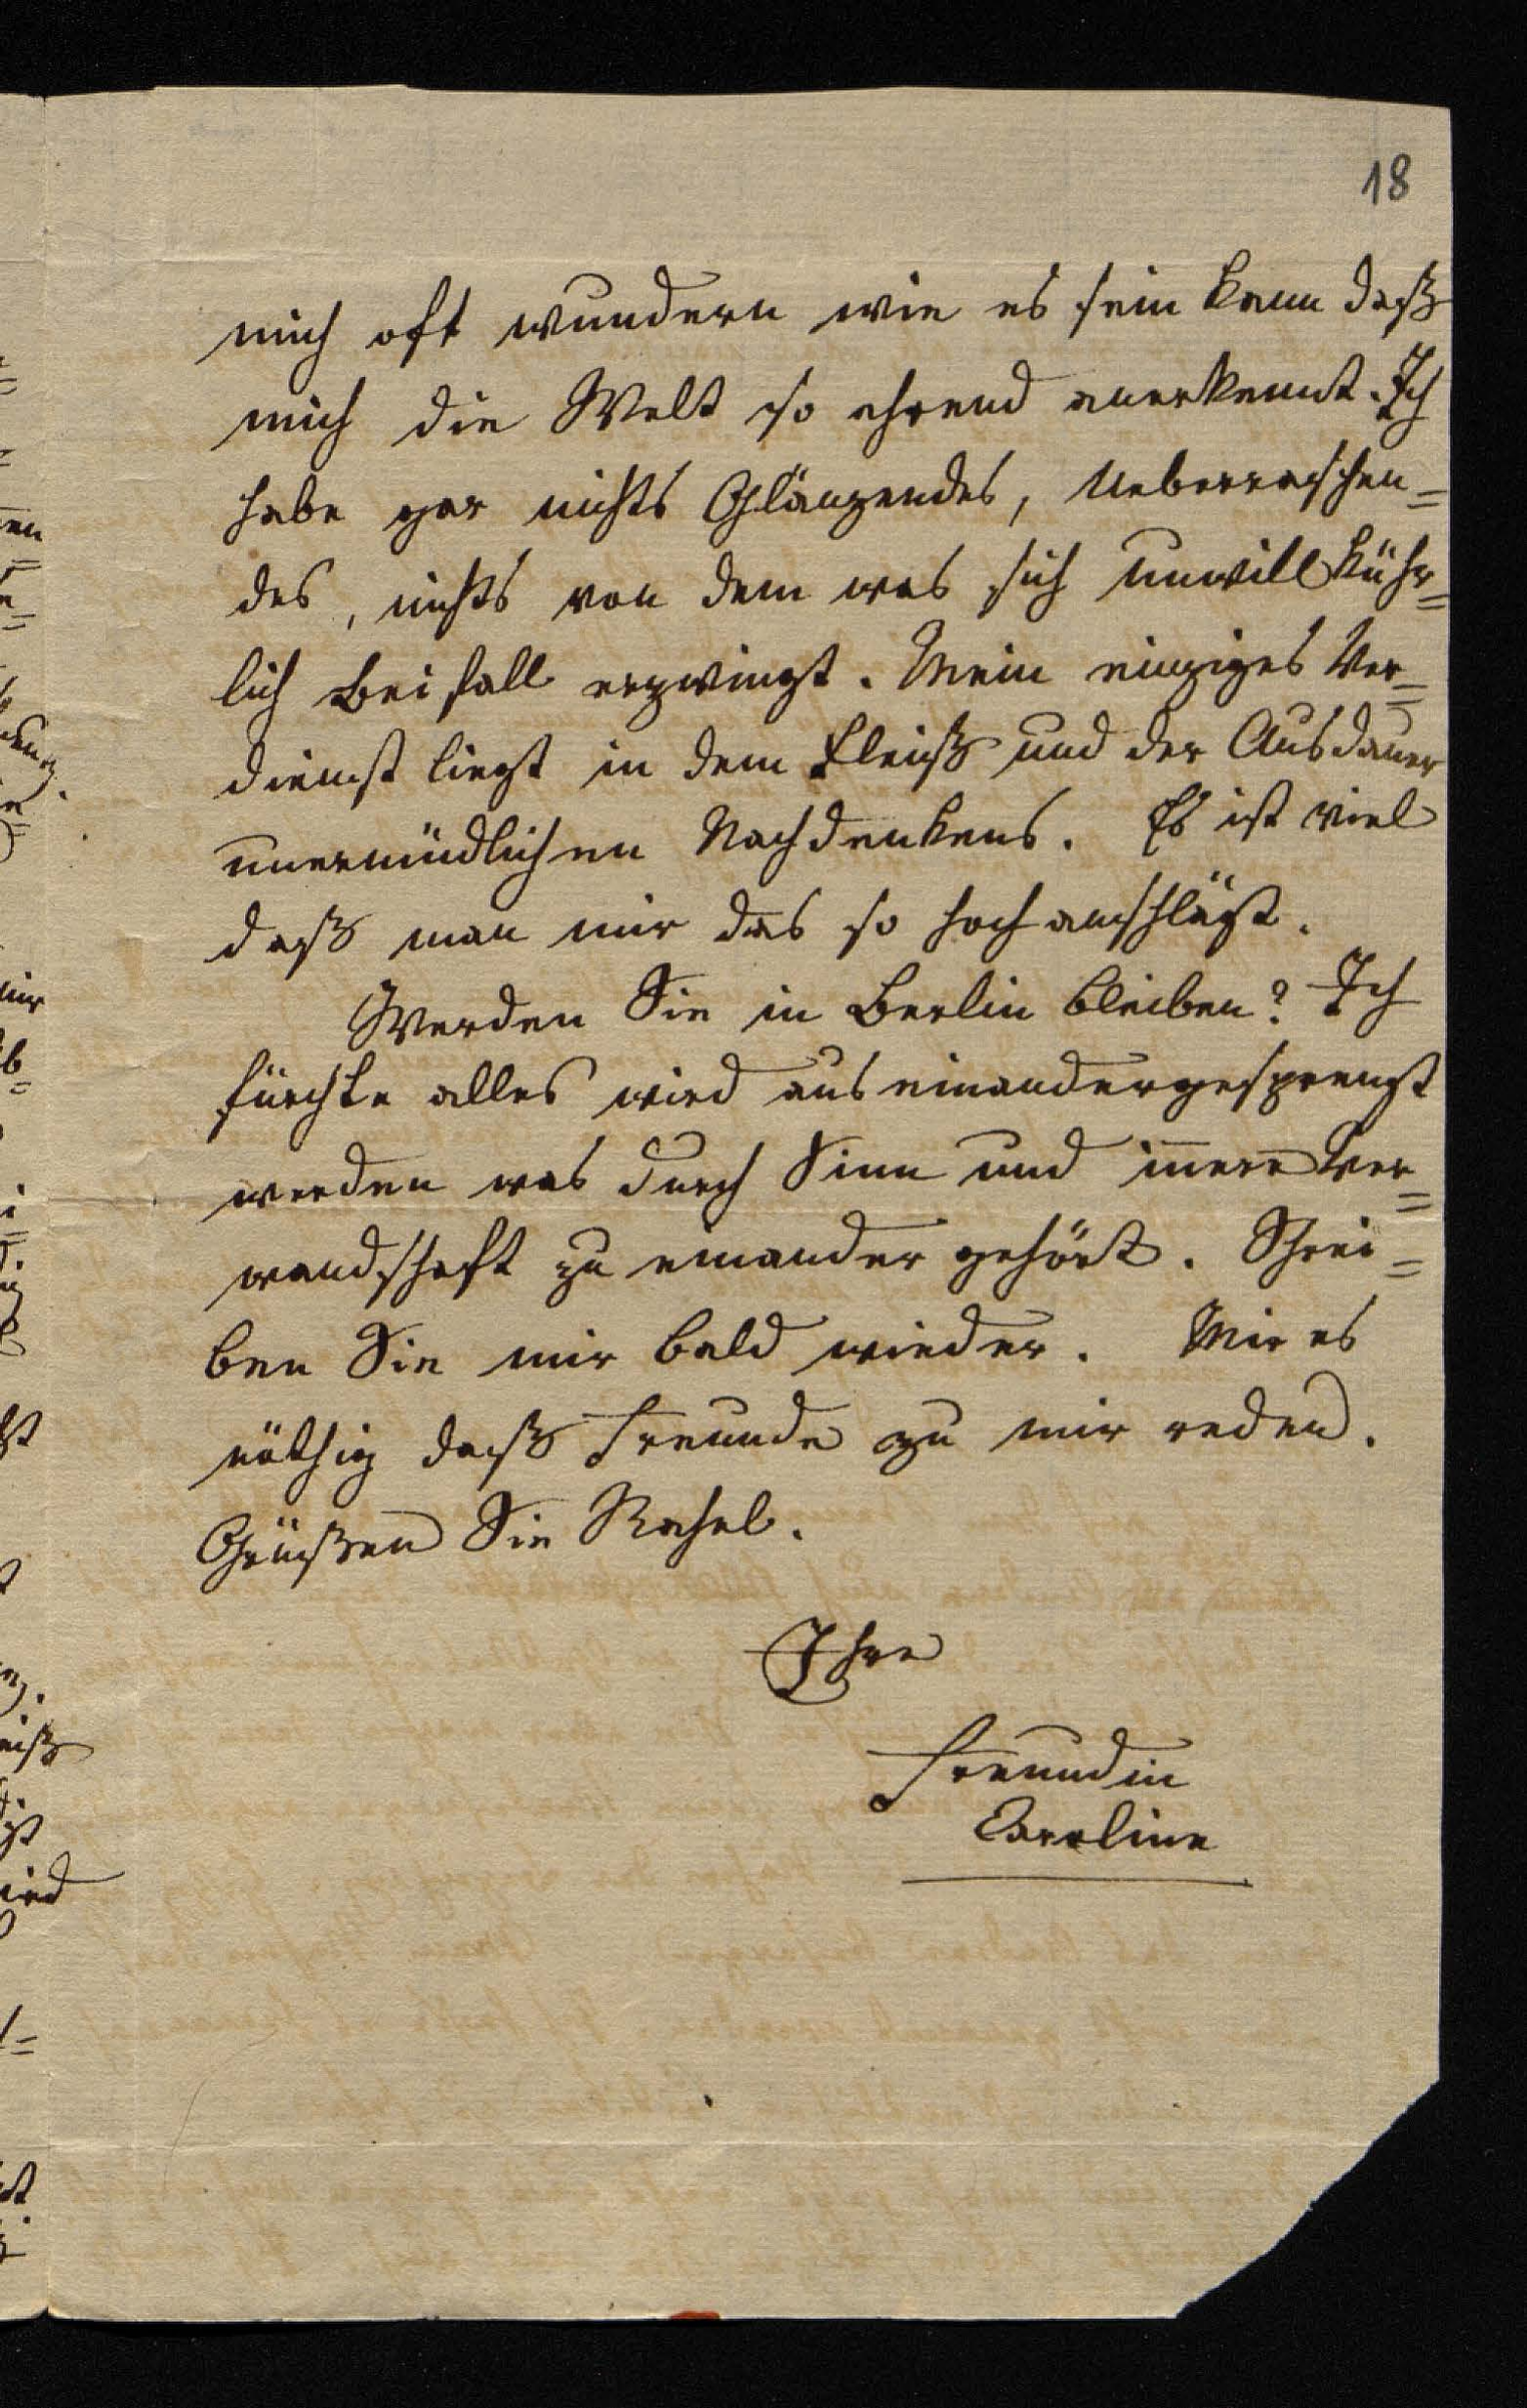 18
mich oft wundern wie es sein kann daß
mich die Welt so ehrend anerkennt. Ich
habe gar nichts Glänzendes, Ueberraschen=
des, nichts von dem was sich unwillkühr=
lich Beifall erzwingt. Mein einziges Ver=
dienst liegt in dem Fleiß und der Ausdauer
unermüdlichen Nachdenkens. Es ist viel
daß man mir das so hoch anschlägt.
Werden Sie in Berlin bleiben? Ich
fürchte alles wird auseinandergesprengt
werden was durch Sinn und innere Ver=
wandschaft zu einander gehört. Schrei=
ben Sie mir bald wieder. Mir es
nöthig daß Freunde zu mir reden.
Grüßen Sie Rahel.
Ihre
Freundin
Caroline